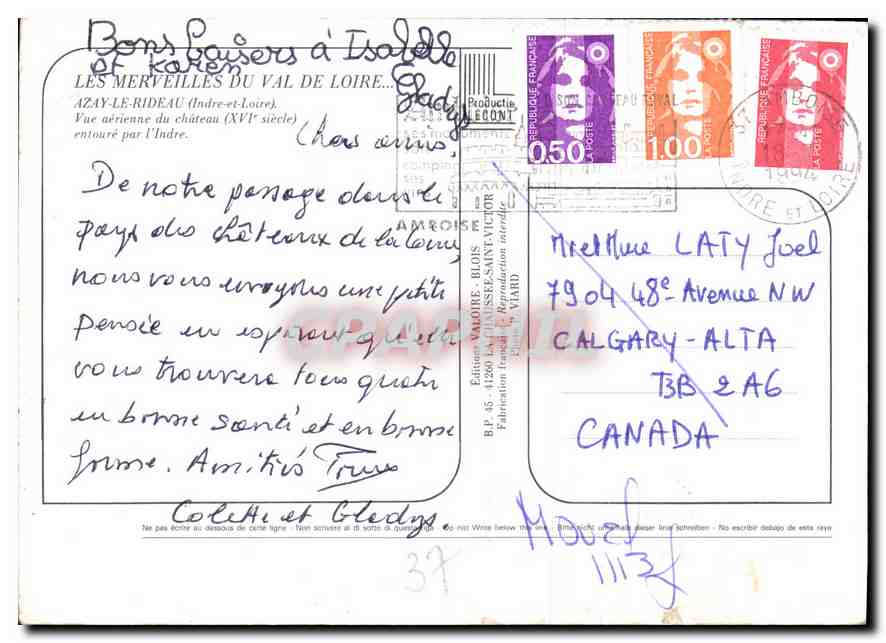 Bons baisers à Isabelle
et Karen
Gladys
LES MERVEILLES DU VAL DE LOIRE...
AZAY-LE-RIDEAU (Indre-et-Loire).
Vue aérienne du château (XVIe siècle)
entouré par l'Indre.
Productic
LECONT
Chers amis,
De notre passage dans le
pays des châteaux de la Loire,
nous vous envoyons une petite
pensée en espérant qu'elle
vous trouvera tous quatre
en bonne santé et en bonne
forme. Amitiés
Colette et Gladys
AMBOISE
Editions VALOIRE - BLOIS
B.P. 45 - 41260 LA CHAUSSEE-SAINT-VICTOR
Fabrication française - Reproduction interdite
VIARD
REPUBLIQUE FRANÇAISE
0,50
LA POSTE
REPUBLIQUE FRANÇAISE
1,00
LA POSTE
REPUBLIQUE FRANÇAISE
LA POSTE
1994
INDRE ET LOIRE
Mr et Mme LATY Joel
7904 48e Avenue NW
CALGARY-ALTA
T3B 2A6
CANADA
Ne pas écrire au dessous de cette ligne - Non scrivere al di sotto di questa riga - Do not Write below this line - Bitte nicht unterhalb dieser linie schreiben - No escribir debajo de esta raya
MOVED
1113
37
CPAPHIL